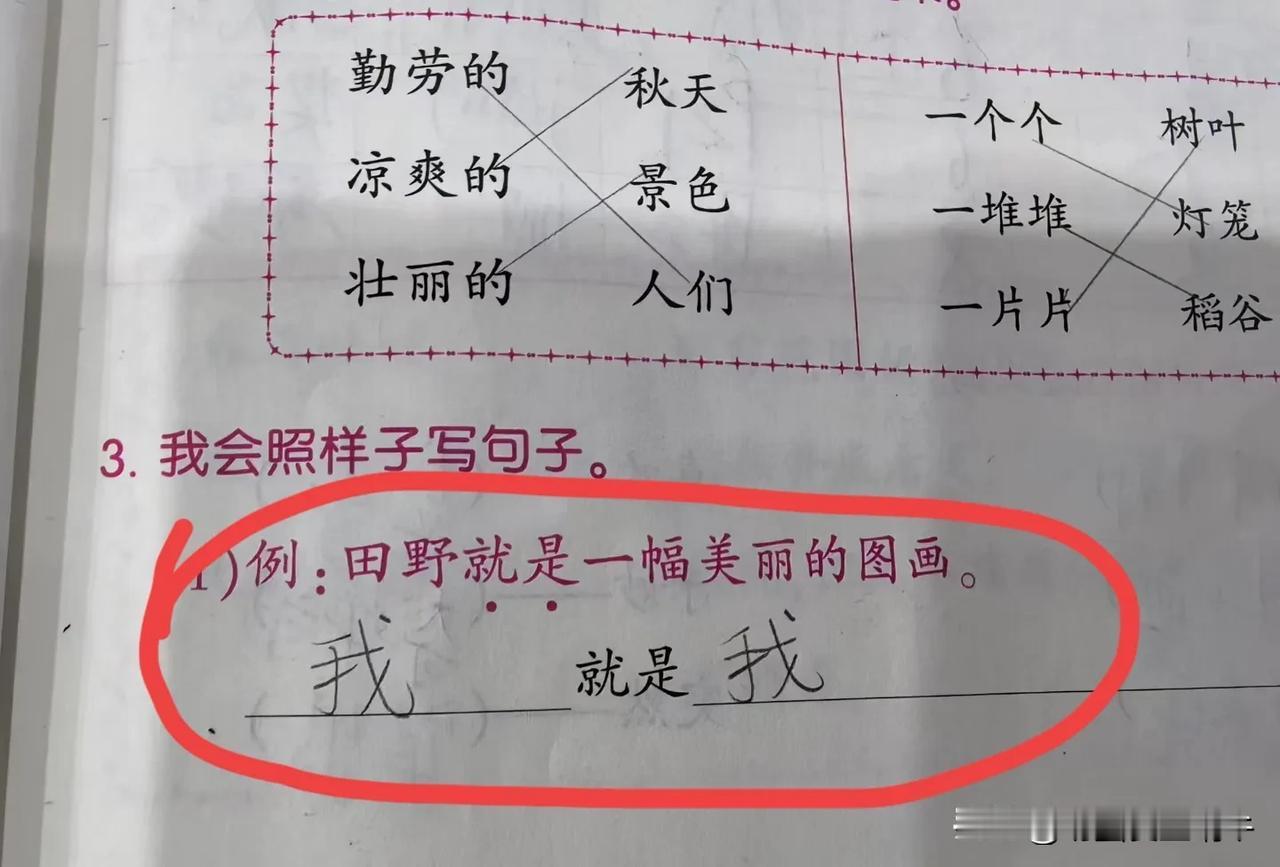 勤劳的 秋天 一个个 树叶
凉爽的 景色 一堆堆 灯笼
壮丽的 人们 一片片 稻谷
3. 我会照样子写句子。
1)例：田野就是一幅美丽的图画。
我 就是 我